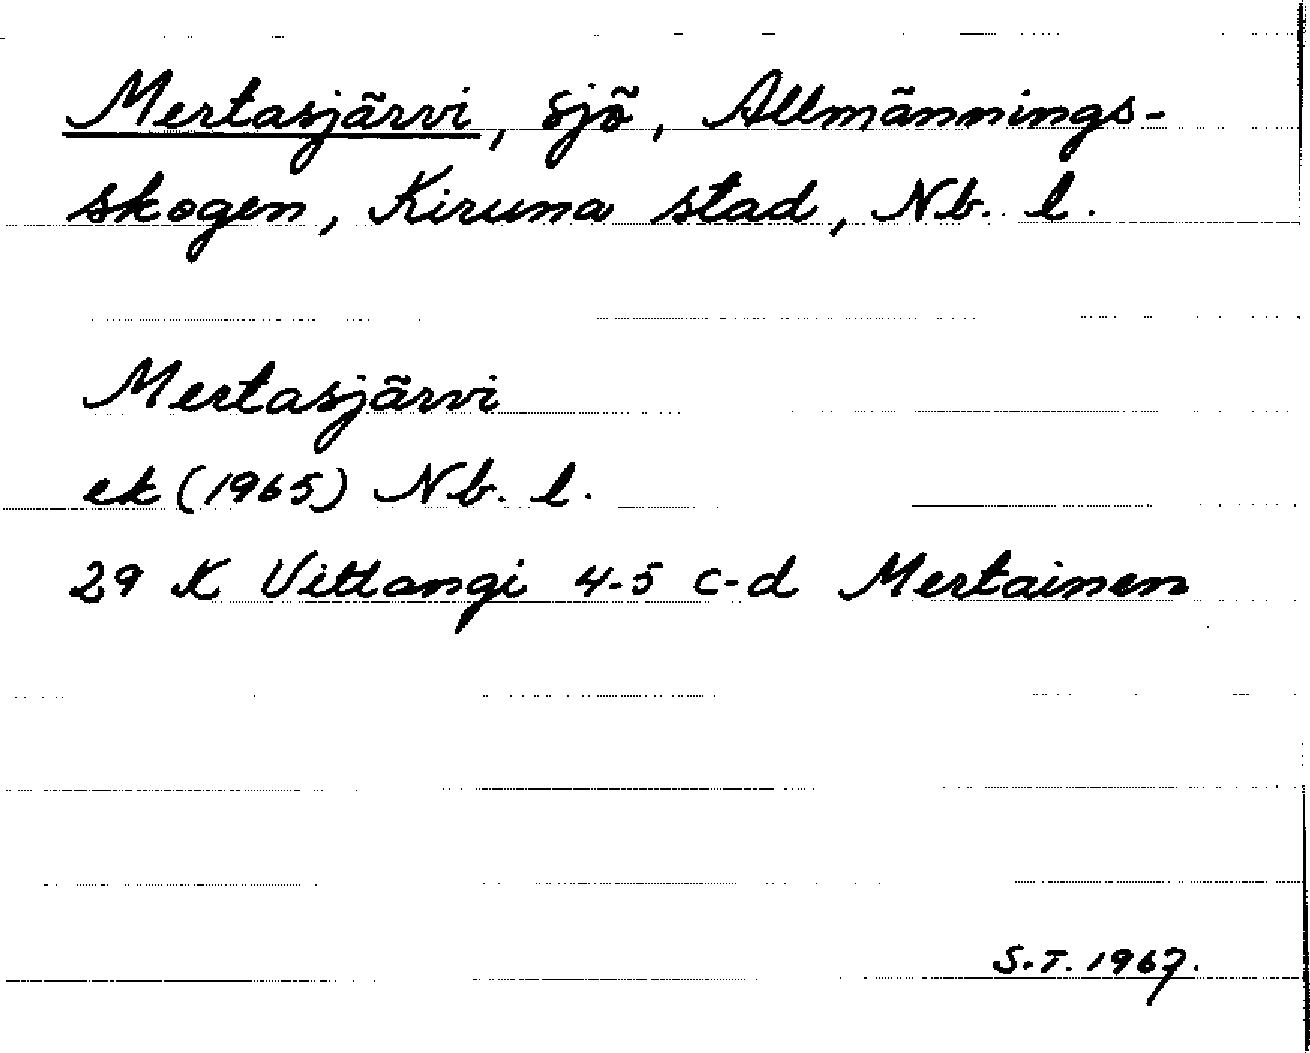 Mertasjärvi, sjö, Allmännings-
skogen, Kiruna stad, Nb. l.
Mertasjärvi
ek (1965) Nb. l.
29 K Vittangi 4-5 c-d Mertainen
S.T. 1967.